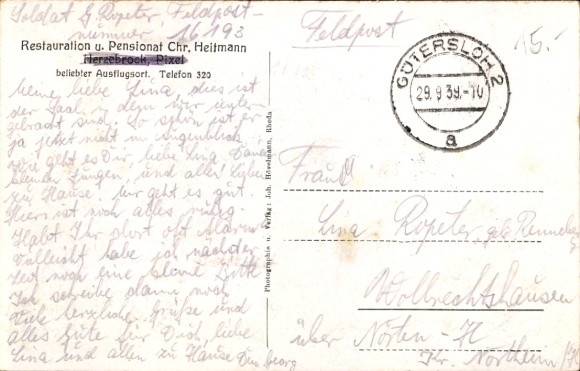 Soldat G. Ropeter, Feldpost-
nummer 16193
Restauration u. Pensionat Chr. Heitmann
Herzebrock, Pixel
beliebter Ausflugsort. Telefon 320
Meine liebe Lina, dies ist
der Saal, in dem wir
gebracht sind. So schön ist er
ja jetzt nicht im Augenblick.
Wie geht es Dir, liebe Lina,
Jungen, und allen Lieben
zu Hause? Mir geht es gut.
Hier ist noch alles ruhig.
Habt Ihr dort oft Alarm?
Vielleicht habe ich nächster
Zeit noch eine kleine Bitte
Ich schreibe dann noch
Viele herzliche Grüße und
alles Gute für Dich, liebe
Lina und allen zu Hause Dein Georg
Photographie u. Verlag: Joh. Hövelmann, Rheda
Feldpost
15.-
GÜTERSLOH 2
29.9.39.-10
a
Frau
Lina Ropeter, geb. Renneberg
Wolbrechtshausen
über Nörten-H
Kr. Northeim/H